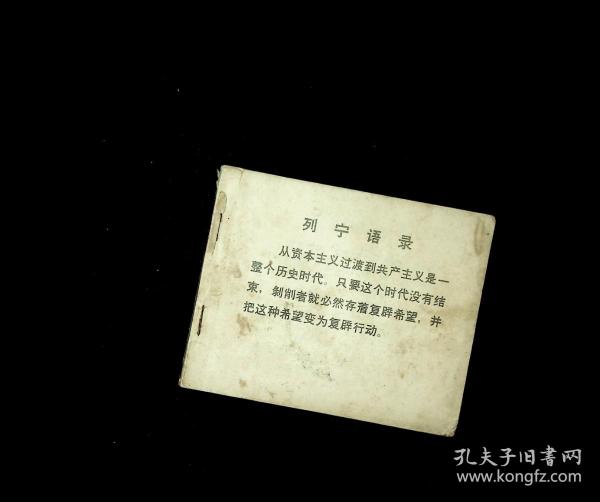 列宁语录
从资本主义过渡到共产主义是一
整个历史时代。只要这个时代没有结
束，剥削者就必然存着复辟希望，并
把这种希望变为复辟行动。
孔夫子旧書网
www.kongfz.com